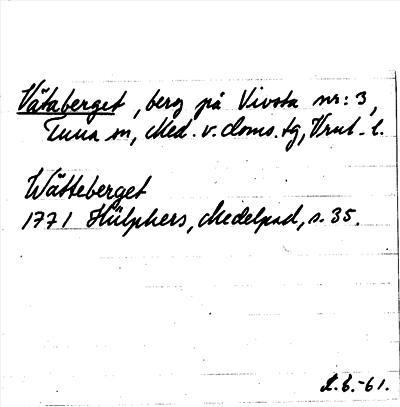 Våtaberget, berg på Vivsta nr: 3,
Tuna sn, Med. v. doms. tg, Vrnl. l.
Wätteberget
1771 Hülphers, Medelpad, s. 35.
L.E.-61.